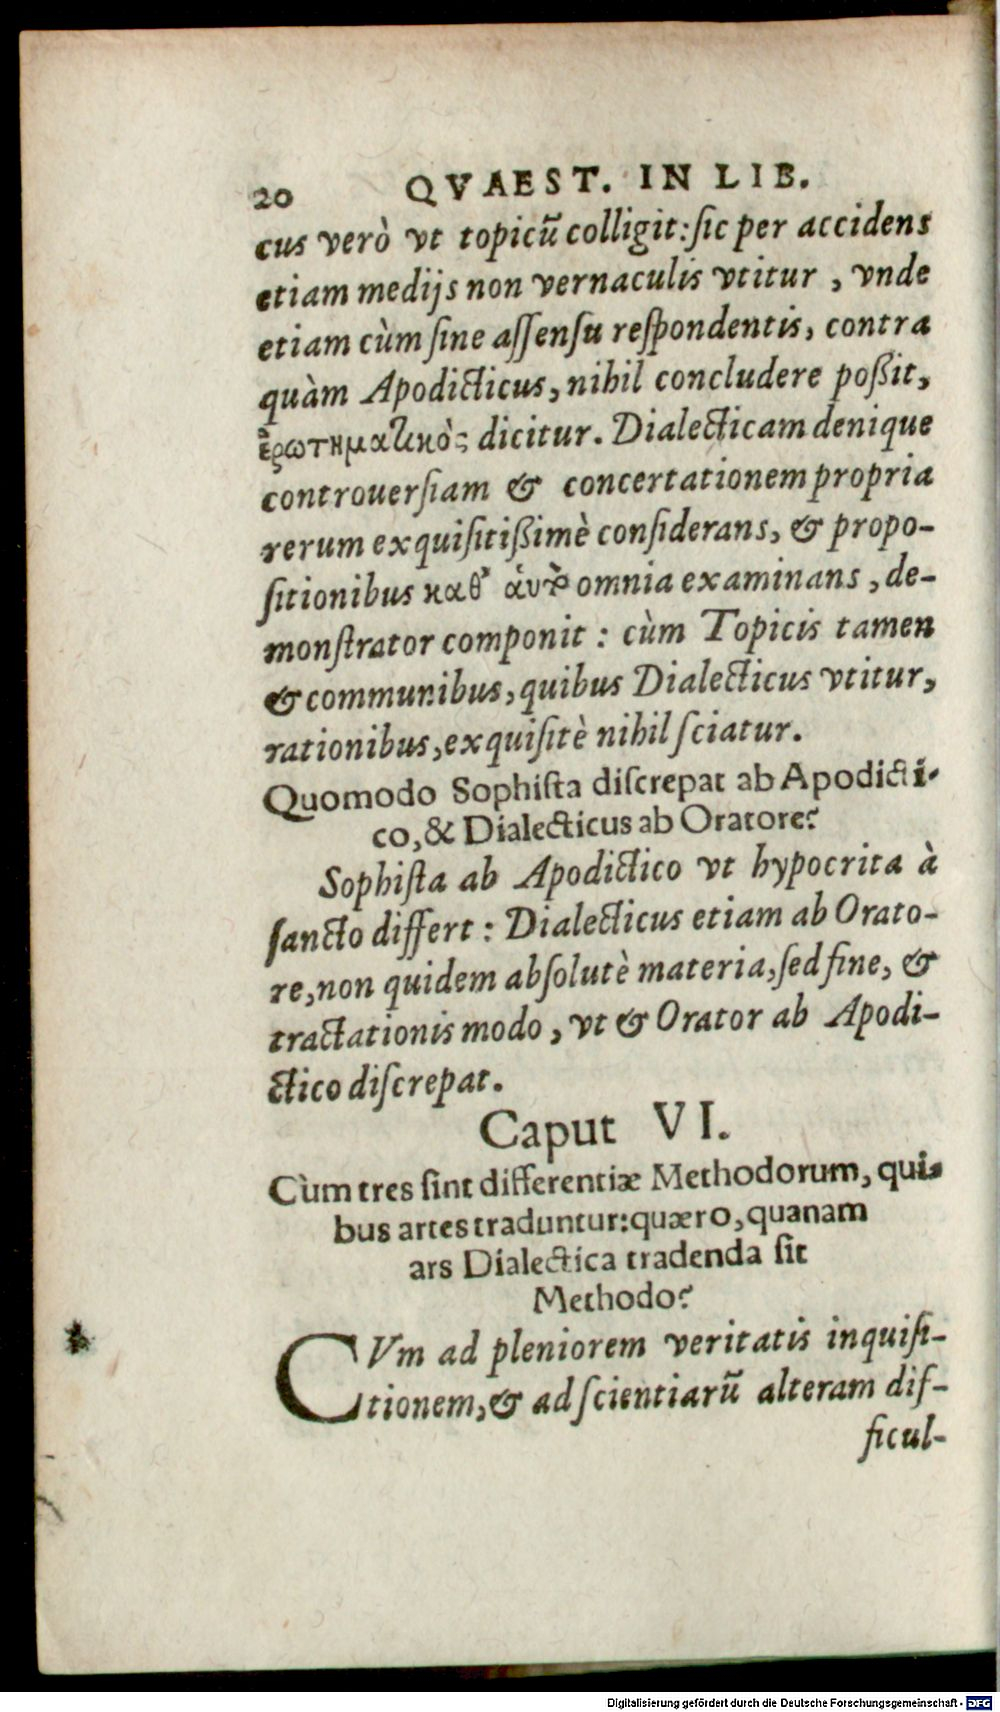 20 QVAEST. IN LIB.
cus verò vt topicũ colligit: ſic per accidens
etiam medijs non vernaculis vtitur , vnde
etiam cùm ſine aſſenſu reſpondentis, contra
quàm Apodicticus, nihil concludere poßit,
ἐρωτηματικὸς dicitur. Dialecticam denique
controuerſiam & concertationem propria
rerum exquiſitißimè conſiderans, & propo-
ſitionibus καθ᾽ ἁυτὸ omnia examinans , de-
monſtrator componit : cùm Topicis tamen
& communibus, quibus Dialecticus vtitur,
rationibus, exquiſitè nihil ſciatur.
Quomodo Sophiſta diſcrepat ab Apodicti-
co, & Dialecticus ab Oratore?
Sophiſta ab Apodictico vt hypocrita à
ſancto differt : Dialecticus etiam ab Orato-
re, non quidem abſolutè materia, ſed fine, &
tractationis modo , vt & Orator ab Apodi-
ctico diſcrepat.
Caput VI.
Cùm tres ſint differentiæ Methodorum, qui-
bus artes traduntur: quæro, quanam
ars Dialectica tradenda ſit
Methodo?
CVm ad pleniorem veritatis inquiſi-
tionem, & ad ſcientiarũ alteram dif-
ficul-
Digitalisierung gefördert durch die Deutsche Forschungsgemeinschaft - DFG